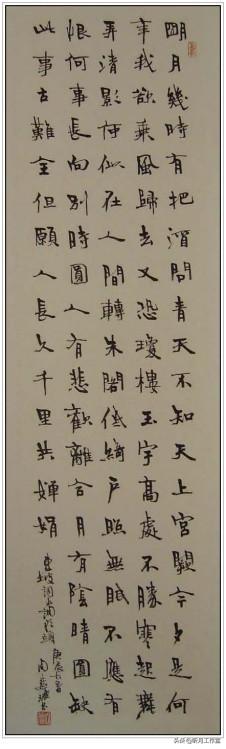 明月幾時有把酒問青天不知天上宮闕今夕是何
年我欲乘風歸去又恐瓊樓玉宇高處不勝寒起舞
弄清影何似在人間轉朱閣低綺戶照無眠不應有
恨何事長向別時圓人有悲歡離合月有陰晴圓缺
此事古難全但願人長久千里共嬋娟
東坡詞水調歌頭
庚辰
周
头条@昕月工作室